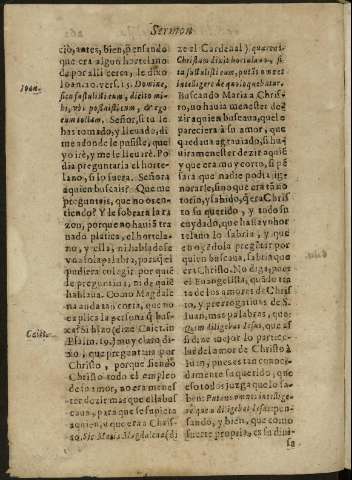 Sermon
ciò, antes, bien, pensando
que era algun hortelano
de por alli cerca, le dixo
Ioan. 20. vers. 15. Domine,
si tu sustulisti eum, dicito mi-
hi, vbi posuisti eum, & ego
eum tollam. Señor, si tu le
has tomado, y lleuado, di
me adonde le pusiste, que
yo iré, y me le lleuaré. Po
dia preguntarla el horte-
lano, si lo fuera. Señora
a quien buscais? Que me
preguntais, que no os en-
tiendo? Y le sobrara la ra
zon, porque no hauiã tra
nado platica, el hortela-
no, y ella; ni habladose
vna sola palabra, para q̃ el
pudiera colegir por quiẽ
de preguntaua, ni de quiẽ
hablaua. Como Magdale
na andata corta, que no
explica la persona q̃ bus-
ca? Si hizo (dize Caiet. in
Psalm. 19.) muy claro di-
xo, que preguntaua por
Christo, porque siendo
Christo todo el empleo
de su amor, no era menes
ter dezir mas que ella bus
caua, para que se supiera
a quien, y que era Chris-
to. Sic Maria Magdalena (di
ze el Cardenal) quærens
Christum dixit hortulano, si
tu sustulisti eum, putãs omnes
intelligere de quo loquebatur.
Buscando Maria a Chris-
to, no hauia menester de-
zir a quien buscaua, que le
pareciera à su amor, que
quedaua agrauiado, si hu
uiera menester dezir a quiẽ
y que era muy corto, si pẽ
sara que nadie podia ig-
norarle, sino que era tã no
torio, y sabido, q̃ era Chris
to su querido, y todo su
cuydado, que hasta vn hor
telano lo sabria, y que
en oyendola preguntar por
quien buscaua, sabria que
era Christo. No diga pues
el Euangelista, quãdo tra
ta de los amores de Chris
to, y prerrogatiuas de S.
Iuan, mas palabras, que:
Quem diligebat Iesus, que es
si dize mejor lo particu-
lar del amor de Christo à
Iuan, pues es tan conoci-
damente su querido, que
esso todos juzga que lo sa-
ben: Putans omnes intellige-
re quem diligebat Iesus: pen-
sando, y bien, que como
fuerte proprio, es su diui-
sa
Ioan.
Caiet.